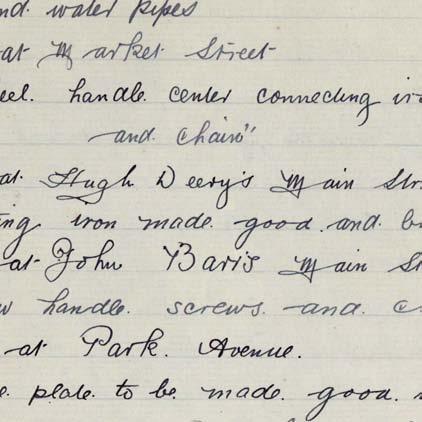 and water pipes
at Market Street
handle center connecting
and chain"
at Hugh Deery's Main
iron made good and
at John Bari's Main
handle screws and
at Park Avenue.
plate to be made good